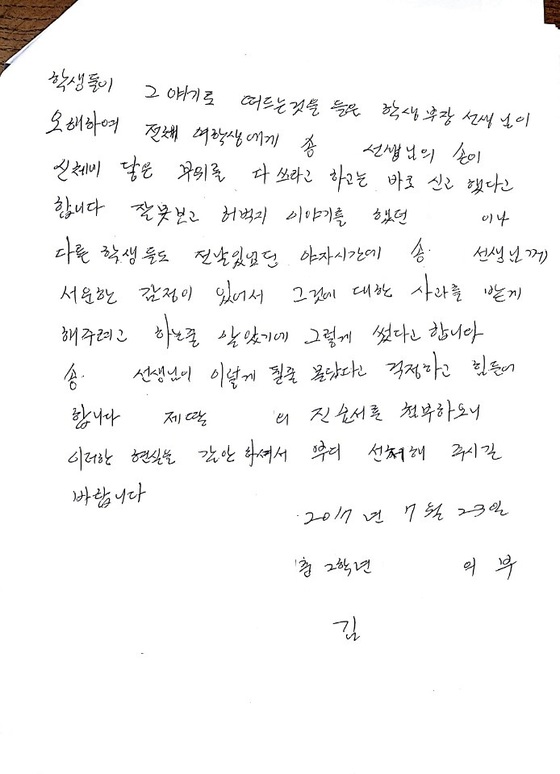 학생들이 그 야기로 떠드는것을 들은 학생부장 선생님이
오해하여 전체 여학생에게 송 선생님의 손이
신체에 닿은 부위를 다 쓰라고 하고는 바로 신고 했다고
합니다 잘못보고 허벅지 이야기를 했던 이나
다른 학생들도 전날있었던 야자시간에 송 선생님께
서운한 감정이 있어서 그것에 대한 사과를 받게
해주려고 하는줄 알았기에 그렇게 썼다고 합니다
송 선생님이 이렇게 될줄 몰랐다고 걱정하고 힘들어
합니다 제딸 의 진술서를 첨부하오니
이러한 현실을 감안하셔서 부디 선처해 주시길
바랍니다
2017년 7월 23일
2학년 의 부
김